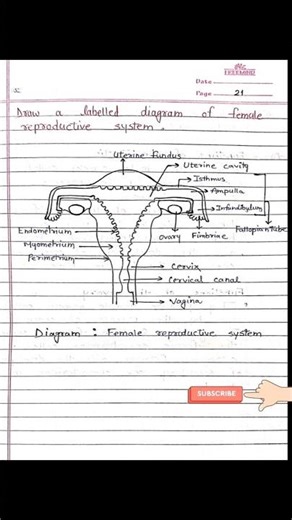 Date
Page 21
Draw a labelled diagram of female
reproductive system.
Uterine fundus
Uterine cavity
Isthmus
Ampulla
Infundibulum
Fallopian tube
Endometrium
Myometrium
Perimetrium
ovary
Fimbriae
Cervix
Cervical canal
Vagina
Diagram : Female reproductive system
SUBSCRIBE